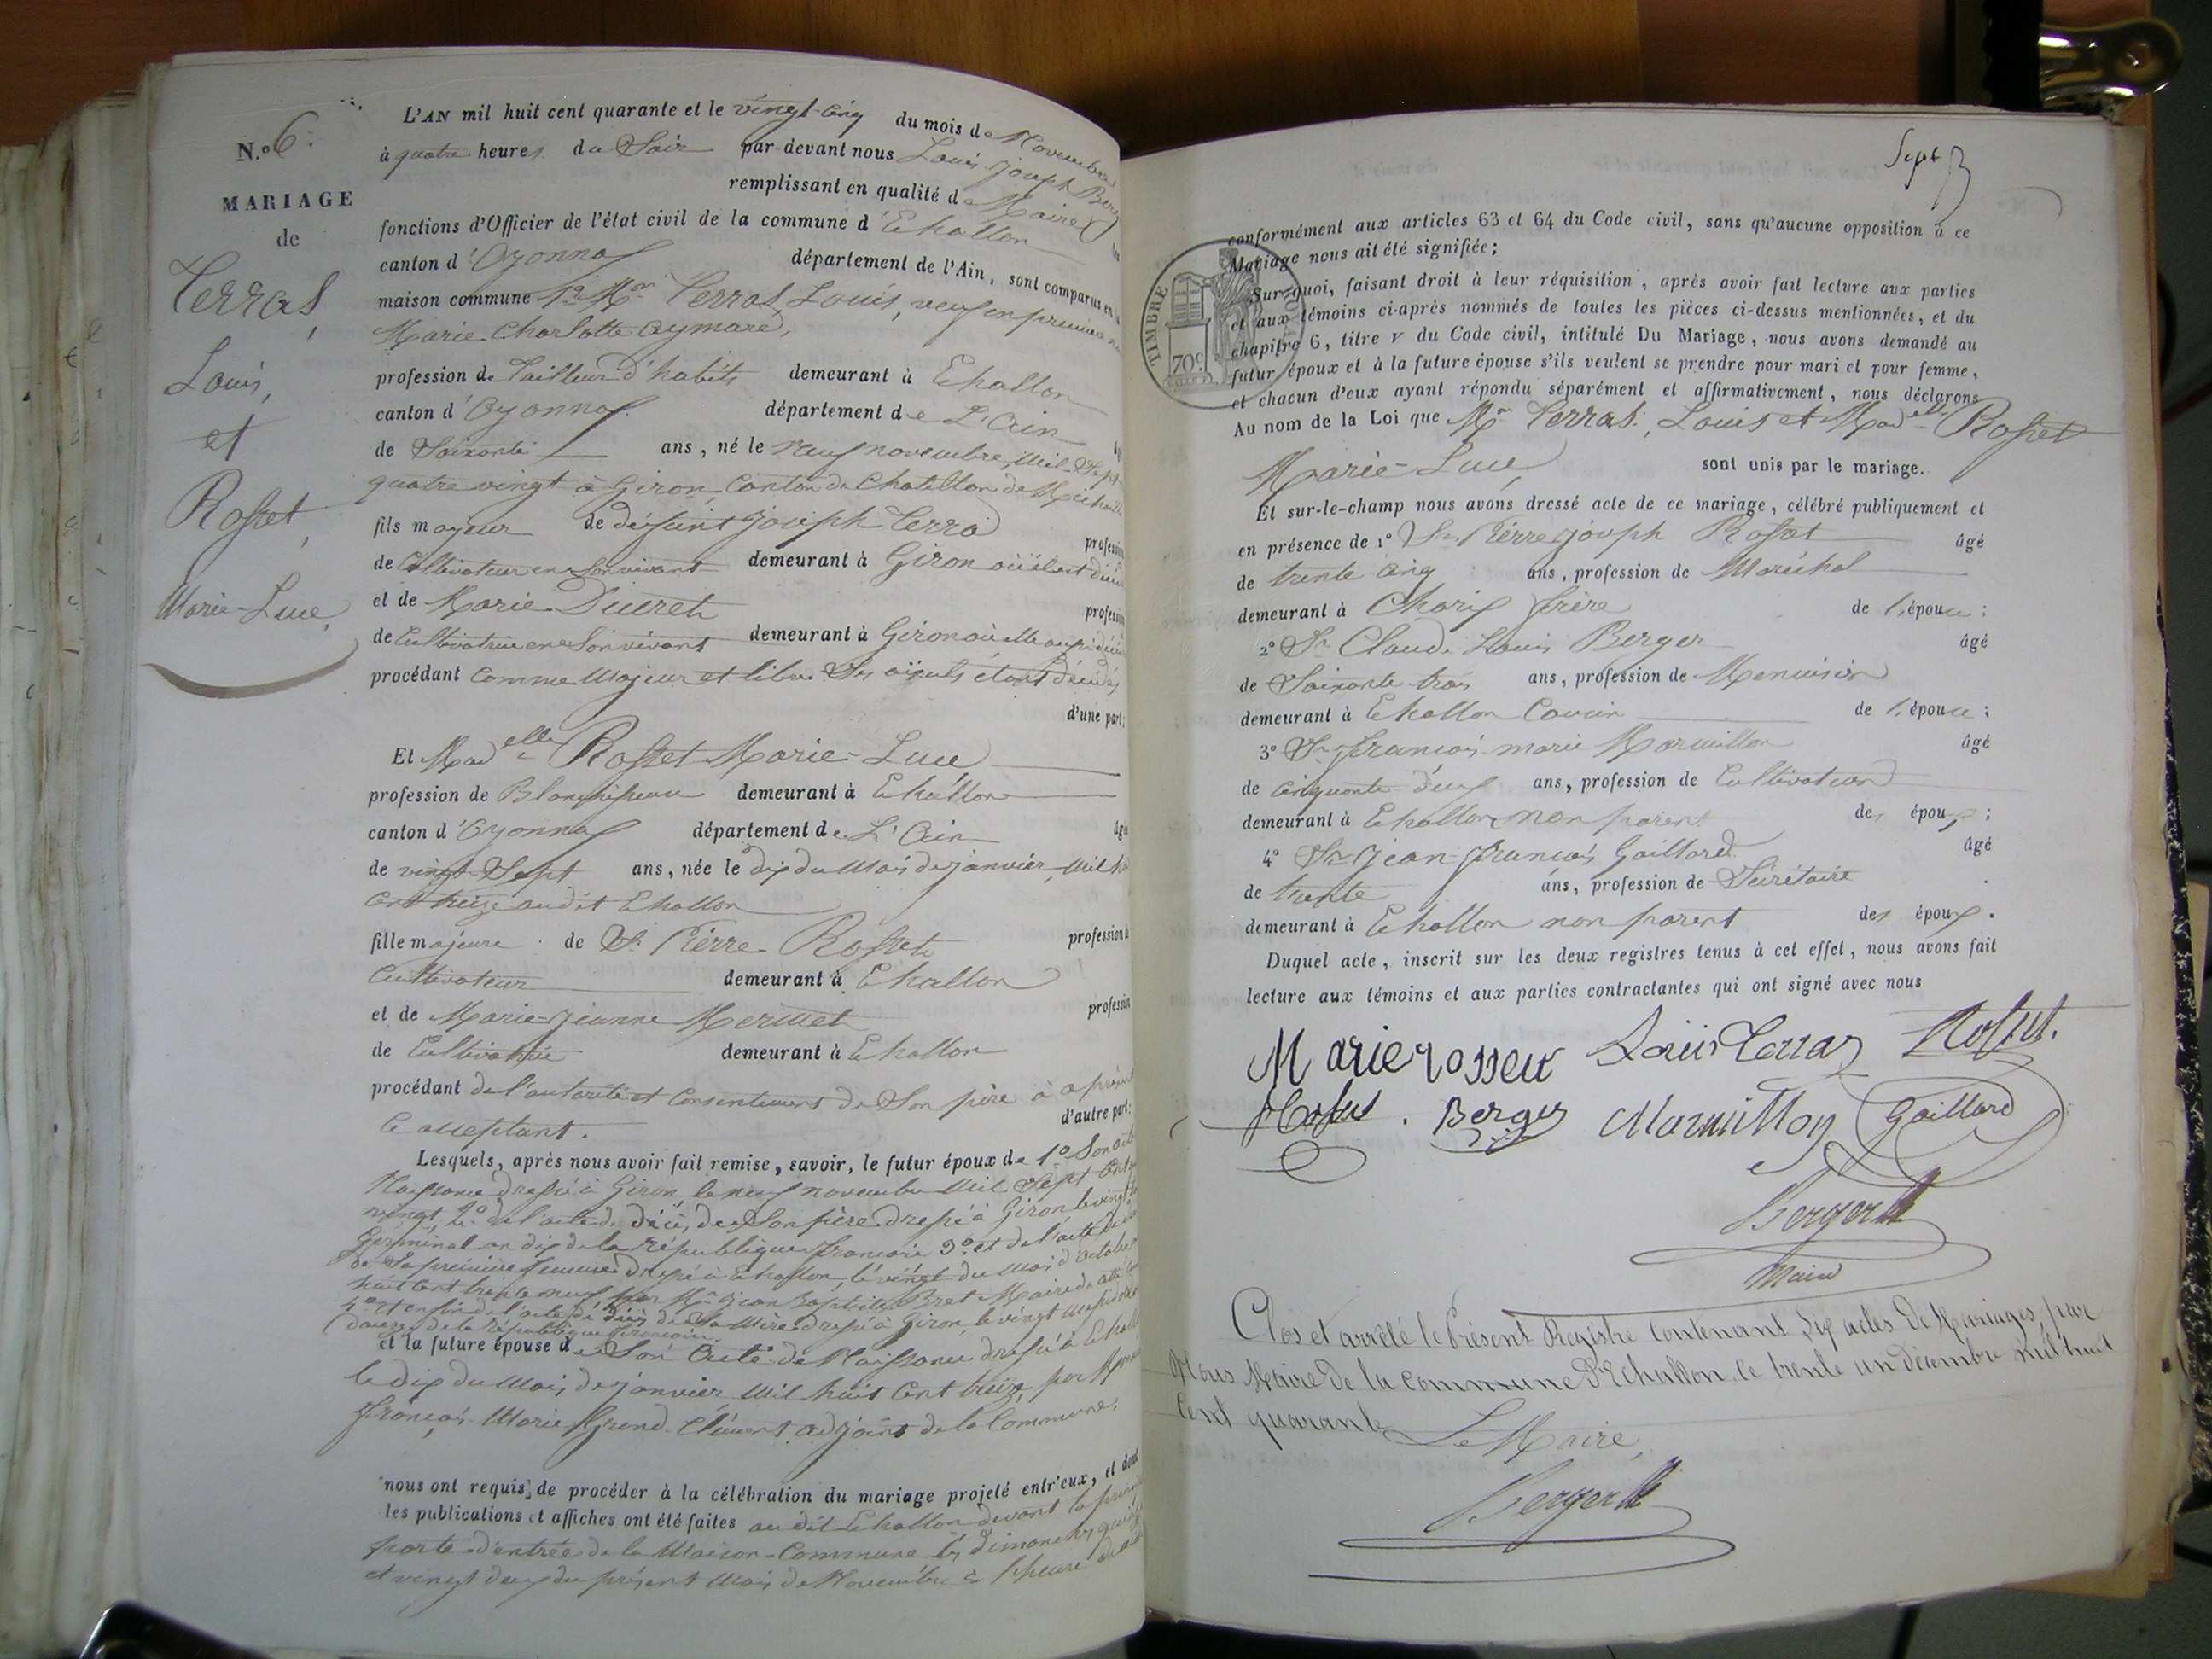 N.º 6.
MARIAGE
de
Terras,
Louis,
et
Rosset,
Marie-Luce,
L'AN mil huit cent quarante et le vingt-cinq du mois de Novembre
à quatre heures du Soir par-devant nous Louis Joseph Berger
remplissant en qualité de Maire les
fonctions d'Officier de l'état civil de la commune d'Echallon
canton d'Oyonnax département de l'Ain, sont comparus en la
maison commune 1º Mr Terras, Louis, veuf en premières
Marie Charlotte Aymard,
profession de Tailleur d'habits demeurant à Echallon
canton d'Oyonnax département de L'Ain
de Soixante ans, né le neuf novembre, Mil Sept
quatre vingt à Giron, Canton de Chatillon de Michaille
fils majeur de défunt Joseph Terra profession
de Cultivateur en son vivant demeurant à Giron où il est décédé
et de Marie Ducret profession
de Cultivatrice en Son vivant demeurant à Giron où elle aussi décédée
procédant comme Majeur et libre Ses aïeuls étant décédés
d'une part;
Et Madelle Rosset Marie-Luce
profession de Blanchisseuse demeurant à Echallon
canton d'Oyonnax département de L'Ain âgée
de vingt-Sept ans, née le dix du Mois de janvier, Mil huit
cent treize audit Echallon
fille majeure de Sr Pierre Rosset profession de
Cultivateur demeurant à Echallon
et de Marie-Jeanne Mermet profession
de Cultivatrice demeurant à Echallon
procédant de l'autorité et Consentement de Son père à ce présent
d'autre part;
Ce acceptant.
Lesquels, après nous avoir fait remise, savoir, le futur époux de 1º Son acte
Naissance dressé à Giron, le neuf novembre Mil Sept Cent
vingt, 2º de l'acte de décès de Son père dressé à Giron le vingt
Germinal an dix de la république française 3º et de l'acte de
de Sa première femme dressé à Echallon, le vingt du Mois d'octobre
huit Cent trente neuf par Mr Jean Baptiste Bret Maire
4º et enfin de l'acte de décès de Sa Mère dressé à Giron, le vingt
de la république française.
et la future épouse de Son Acte de Naissance dressé à Echallon
le dix du Mois de janvier Mil huit Cent treize, par
François Marie Grand-Clément adjoint de la Commune.
nous ont requis de procéder à la célébration du mariage projeté entr'eux, et dont
les publications et affiches ont été faites au dit Echallon devant la principale
porte d'entrée de la Maison-Commune les dimanches quinze
et vingt deux du présent Mois de Novembre à l'heure de
Sept
TIMBRE ROYAL
70 c.
conformément aux articles 63 et 64 du Code civil, sans qu'aucune opposition à ce
Mariage nous ait été signifiée;
Sur quoi, faisant droit à leur réquisition, après avoir fait lecture aux parties
et aux témoins ci-après nommés de toutes les pièces ci-dessus mentionnées, et du
chapitre 6, titre v du Code civil, intitulé Du Mariage, nous avons demandé au
futur époux et à la future épouse s'ils veulent se prendre pour mari et pour femme,
et chacun d'eux ayant répondu séparément et affirmativement, nous déclarons
Au nom de la Loi que Mr Terras, Louis et Madelle Rosset
Marie-Luce, sont unis par le mariage.
Et sur-le-champ nous avons dressé acte de ce mariage, célébré publiquement et
en présence de 1º Sr Pierre Joseph Rosset âgé
de trente cinq ans, profession de Maréchal
demeurant à Charix frère de l'épouse;
2º Sr Claude Louis Berger âgé
de Soixante trois ans, profession de Menuisier
demeurant à Echallon Cousin de l'épouse;
3º Sr François marie Marmillon âgé
de cinquante deux ans, profession de Cultivateur
demeurant à Echallon non parent des époux;
4º Sr Jean-François Gaillard âgé
de trente ans, profession de Sécrétaire
demeurant à Echallon non parent des époux.
Duquel acte, inscrit sur les deux registres tenus à cet effet, nous avons fait
lecture aux témoins et aux parties contractantes qui ont signé avec nous
Marie rosset Louis Terras Rosset.
Rosset. Berger Marmillon Gaillard
Berger
Maire
Clos et arrêté le Présent Registre Contenant Six actes De Mariages, par
Nous Maire de la Commune D'Echallon, le trente un décembre mil huit
Cent quarante
Le Maire,
Berger